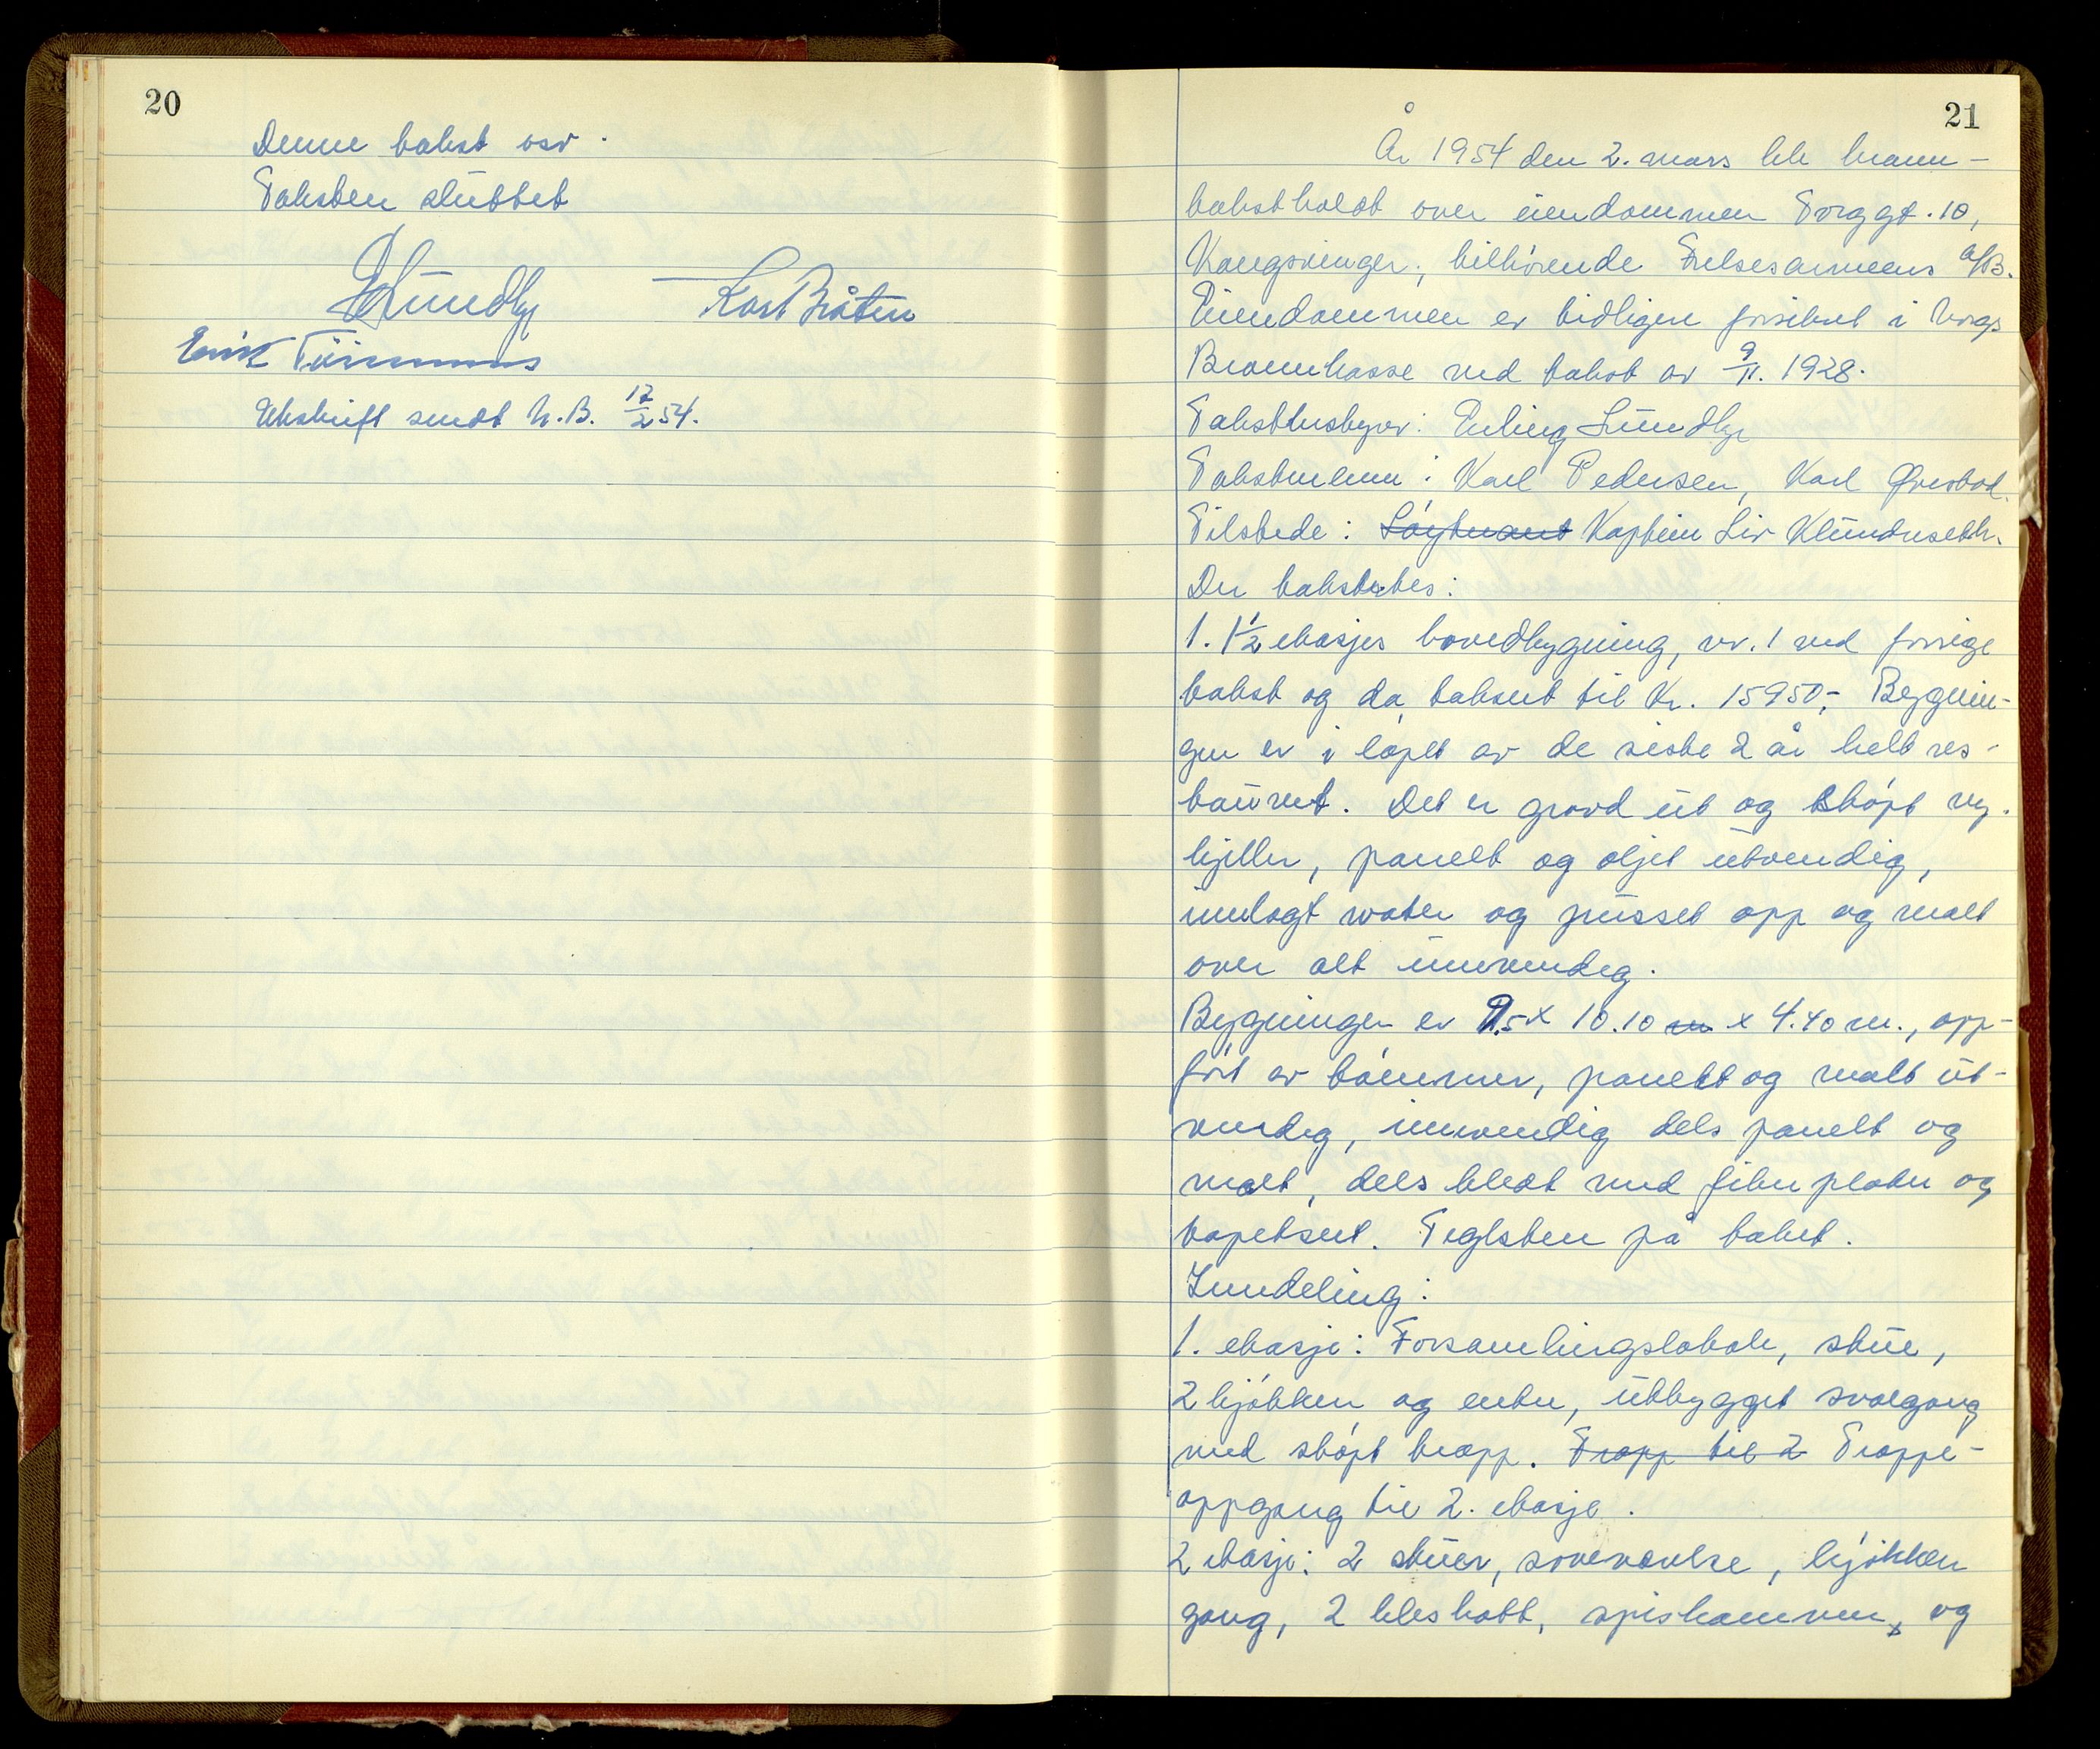 20
Denne takst osv.
Taksten sluttet
E Lundby Karl Bråten
Erik
Utskrift sendt N.B. 12/2 54.
21
År 1954 den 2. mars ble brann-
takst holdt over eiendommen Torggt. 10,
Kongsvinger, tilhörende Frelsesarmeens a/B.
Eiendommen er tidligere forsikret i Norgs
Brannkasse ved takst av 9/11. 1928.
Takstbestyrer: Erling Lundby
Takstmenn: Karl Pedersen, Karl
Tilstede: Löytnant Kaptein Liv Klundseth.
Der taksertes:
1. 1 1/2 etasjes hovedbygning, nr. 1 ved forrige
takst og da taksert til Kr. 15950,- Bygnin-
gen er i löpet av de siste 2 år helt res-
taurert. Det er gravd ut og stöpt ny
kjeller, panelt og oljet utvendig,
innlagt water og pusset opp og malt
over alt innvendig.
Bygningen er 9.5 x 10.10 m x 4.40 m., opp-
fört av tömmer, panelt og malt ut-
vendig, innvendig dels panelt og
malt, dels kledt med fiberplater og
tapetsert. Teglsten på taket.
Inndeling:
1. etasje: Forsamlingslokale, stue,
2 kjökken og entre, utbygget svalgang
med stöpt trapp. Trapp til 2 Trappe-
oppgang til 2. etasje.
2 etasje: 2 stuer, soveværelse, kjökken
gang, 2 kleskott, spiskammer, og